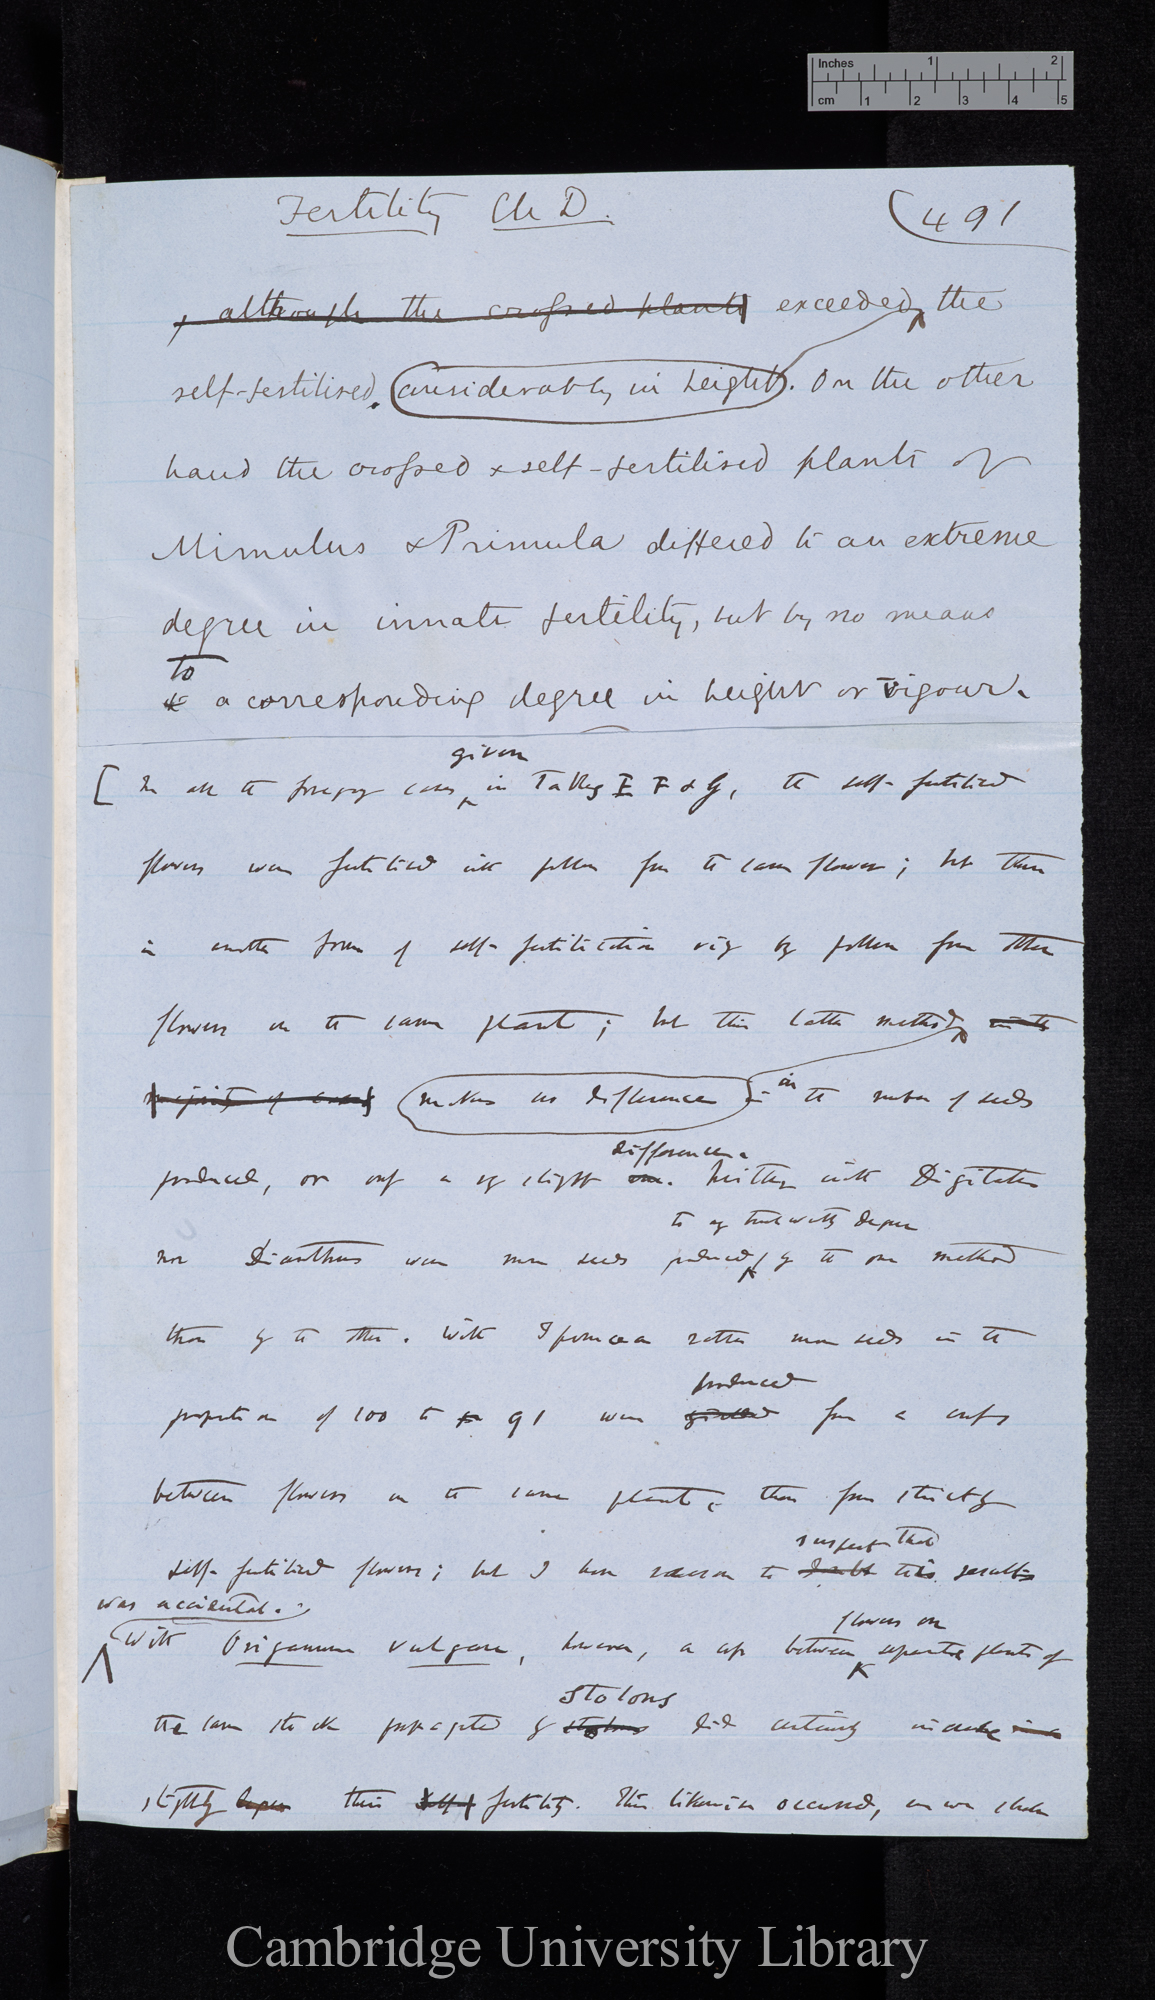 Inches 1 2
cm 1 2 3 4 5
Fertility Ch D.
491
, although the crossed plants exceeded the
self-fertilised. considerably in height. On the other
hand the crossed & self-fertilised plants of
Mimulus & Primula differed to an extreme
degree in innate fertility, but by no means
to
a corresponding degree in height or vigour.
given
[ In all the foregoing cases in Tables E F & G, the self-fertilised
flowers were fertilised with pollen from the same flower; but there
is another form of self-fertilisation viz by pollen from other
flowers on the same plant; but this latter method in the
majority of cases makes no difference in the number of seeds
in
difference.
produced, or only a very slight one. Neither with Digitalis
to any trustworthy degree
nor Dianthus were more seeds produced by the one method
than by the other. With Ipomoea rather more seeds in the
produced
proportion of 100 to 91 were yielded from a cross
between flowers on the same plant, than from strictly
suspect that
self-fertilised flowers; but I have reason to doubt this result
was accidental.
flowers on
With Origanum vulgare, however, a cross between separate plants of
stolons
the same stock propagated by stolons did certainly increase
slightly their self fertility. This likewise occurred, as we shall
Cambridge University Library